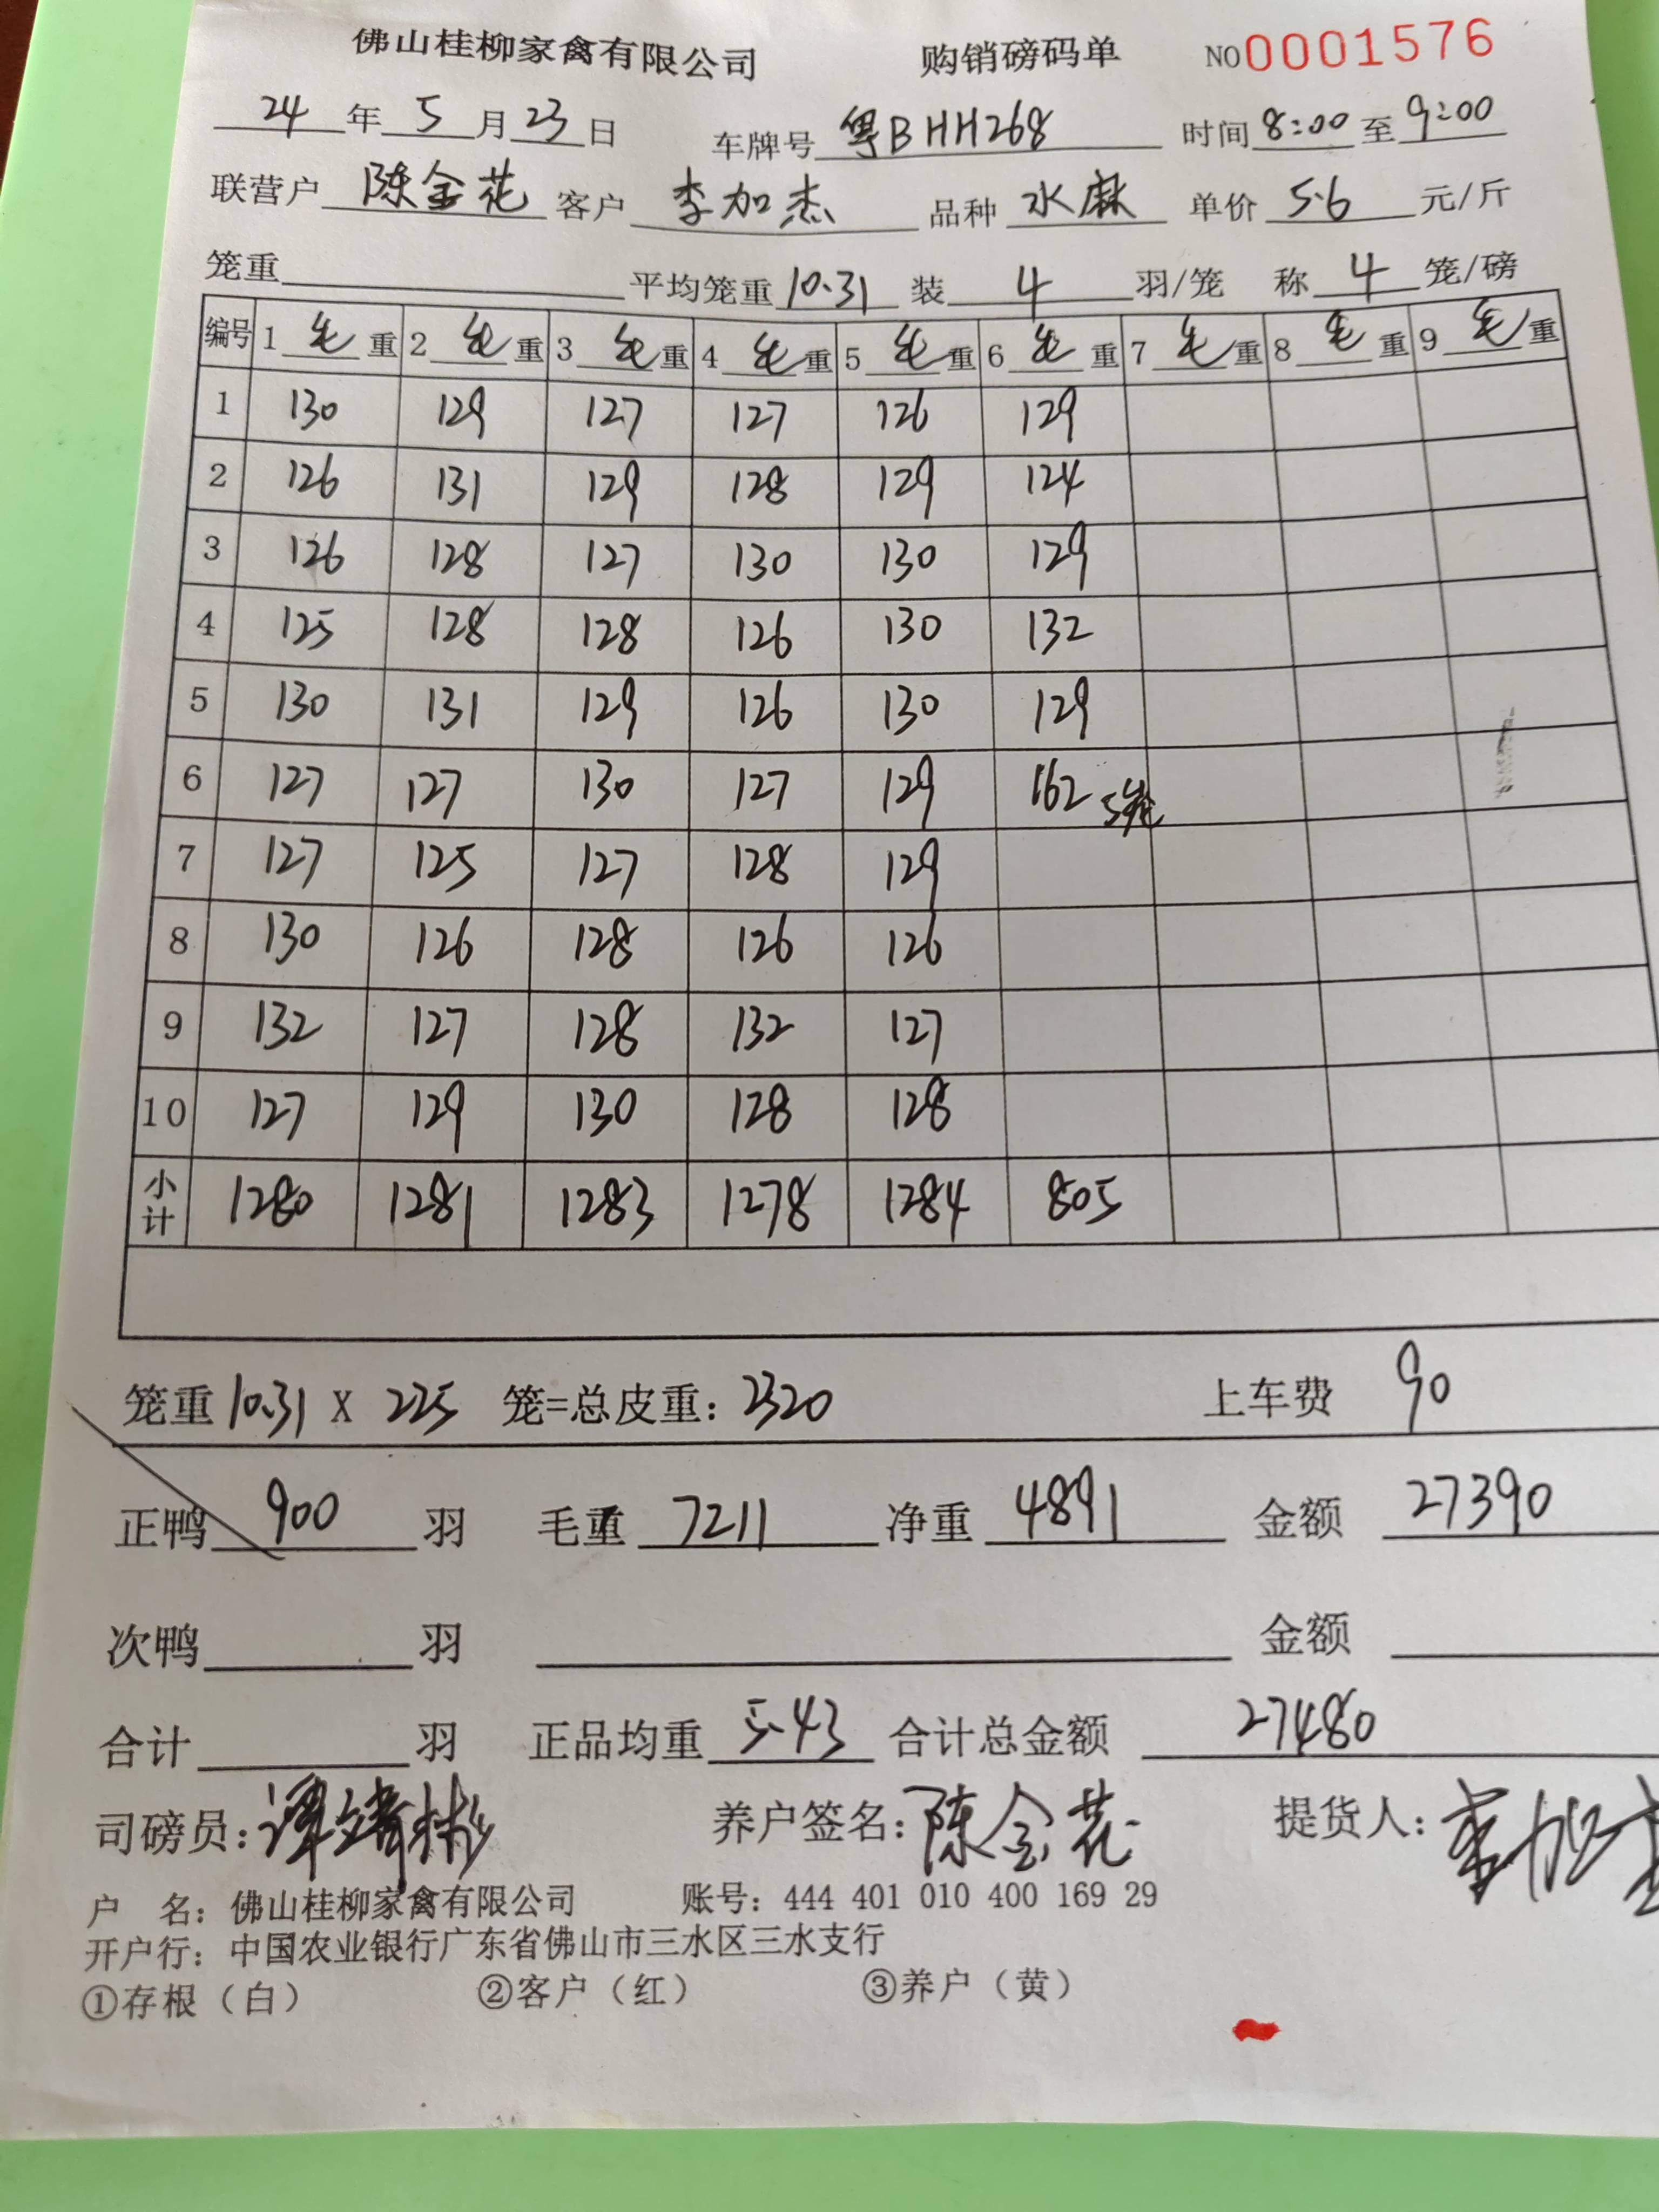 佛山桂柳家禽有限公司 购销磅码单 NO 0001576
24 年 5 月 23 日 车牌号 粤BHH268 时间 8:00 至 9:00
联营户 陈金花 客户 李加杰 品种 水麻 单价 5.6 元/斤
笼重 平均笼重 10.31 装 4 羽/笼 称 4 笼/磅
编号 1 毛 重 2 毛 重 3 毛 重 4 毛 重 5 毛 重 6 毛 重 7 毛 重 8 毛 重 9 毛 重
1 130 129 127 127 126 129
2 126 131 129 128 129 124
3 126 128 127 130 130 129
4 125 128 128 126 130 132
5 130 131 129 126 130 129
6 127 127 130 127 129 162 5笼
7 127 125 127 128 129
8 130 126 128 126 126
9 132 127 128 132 127
10 127 129 130 128 128
小计 1280 1281 1283 1278 1284 805
笼重 10.31 X 225 笼=总皮重: 2320 上车费 90
正鸭 900 羽 毛重 7211 净重 4891 金额 27390
次鸭 羽 金额
合计 羽 正品均重 5.43 合计总金额 27480
司磅员: 谭靖彬 养户签名: 陈金花 提货人: 李加杰
户 名: 佛山桂柳家禽有限公司 账号: 444 401 010 400 169 29
开户行: 中国农业银行广东省佛山市三水区三水支行
①存根（白） ②客户（红） ③养户（黄）